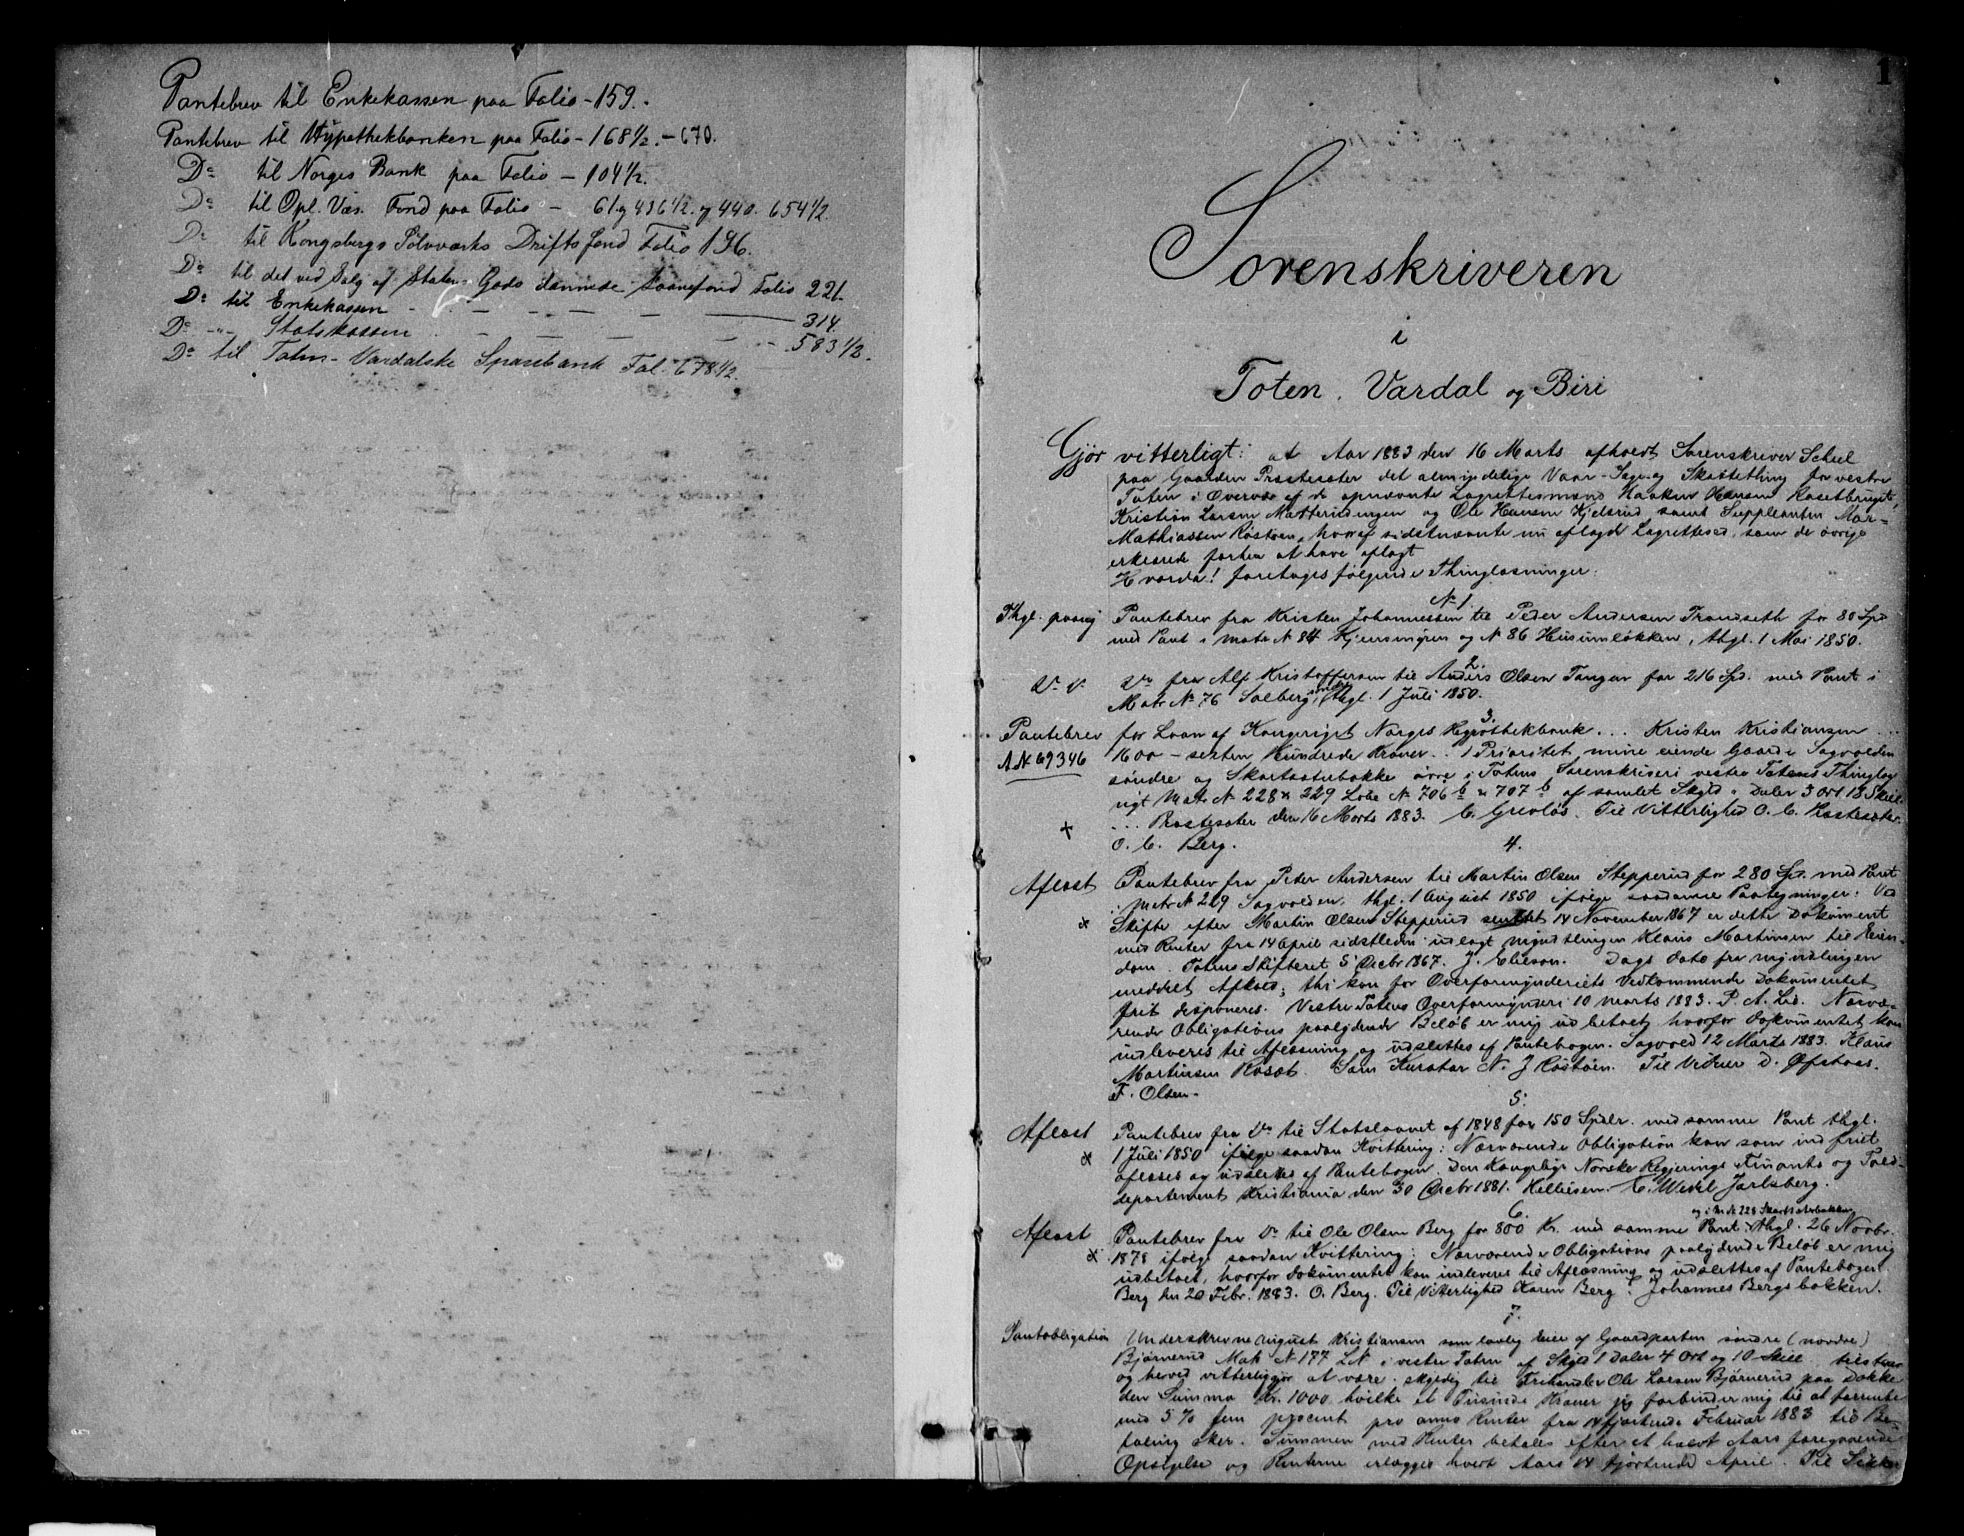 Pantebrev til Enkekassen paa Folio - 159.
Pantebrev til Hypothekbanken paa Folio - 168½. - 670.
Do til Norges Bank paa Folio - 104½.
Do til Opl. Væs. Fond paa Folio - 61 og 436½. og 440. 654½.
Do til Kongsbergs Sølvværks Driftsfond Folio 196.
Do til det ved Salg af Statens Gods dannede Laanefond Folio 221.
Do til Enkekassen - - - - - 314.
Do -"- Statskassen - - - - - 583½.
Do til Toten-Vardalske Sparebank Fol. 678½.
1
Sorenskriveren
i
Toten, Vardal og Biri
Gjør vitterligt: at Aar 1883 den 16 Marts afholdt Sorenskriver Scheel
paa Gaarden Præstesæter det almindelige Vaar-Sage og Skattething for vestre
Toten i Overvær af de opnævnte Lagrettesmænd Haaken Hansen Kasetbruget,
Kristian Larsen og Ole Hansen Kjelsrud samt Suppleanten Mar-
Mathiassen Røstøen, hvoraf sidstnævnte nu aflagde Lagretteseed, som de øvrige
erklærede forhen at have aflagt
Hvorda! foretoges følgende Thinglæsninger:
No 1.
Thgl. paany Pantebrev fra Kristen Johannessen til Peder Andersen Trandseth for 80 Spd
med Pant i Matr N 84 og N 86 Husumløkken, thgl. 1 Mai 1850.
2.
Do do Do fra Alf Kristoffersen til Anders Olsen Tangen for 216 Spd. med Pant i
Matr No 76 Solberg, thgl. 1 Juli 1850.
3.
Pantebrev for Laan af Kongeriget Norges Hypothekbank... Kristen Kristiansen ...
A N 69346 1600 - sexten Hundrede Kroner. 1 Prioritet mine eiende Gaarde Sagvolden
søndre og Skartsæterbakke øvre i Totens Sorenskriveri vestre Totens Thinglag
nyt Matr No 228 & 229 Løbe No 706 b & 707 b af samlet Skyld - Daler 3 Ort 18 Skill
+ ... Præstesæter den 16 Marts 1883. C. Grevløs. Til Vitterlighed O. C. Præstesæter.
O. C. Berg.
4.
Aflæst Pantebrev fra Peder Andersen til Martin Olsen Stepperud for 280 Spd. med Pant
i Matr N 229 Sagvolden, thgl. 1 August 1850 ifølge saadanne Paategninger: Ved
x Skifte efter Martin Olsen Stepperud sluttet 14 November 1867 er dette Dokument
med Renter fra 14 April sidstleden udlagt myndlingen Klaus Martinsen til Eien-
dom. Totens Skifteret 5 Decbr 1867. J. Elieson. Dags dato fra myndlingen
meddelt Afkald; thi kan for Overformynderiets Vedkommende Dokumentet
frit disponeres. Vestre Totens Overformynderi 10 Marts 1883. P. A. Lie. Nærvæ-
rende Obligations paalydende Beløb er mig udbetalt, hvorfor dokumentet kan
indleveres til Aflæsning og udslettes af Pantebogen. Sagvold 12 Marts 1883. Klaus
Martinsen Kaset. Som Kurator N. J Røstøen. Til Vidner D. Øfstaas.
F. Olsen.
5.
Aflæst Pantebrev fra Do til Statslaanet af 1848 for 150 Spdlr. med samme Pant thgl.
x 1 Juli 1850 ifølge saadan Kvittering: Nærværende Obligation kan som indfriet
aflæses og udslettes af Pantebogen. Den Kongelige Norske Regjerings Finants og Told-
departement Kristiania den 30 Decbr 1881. Helliesen. C. Wedel Jarlsberg.
6.
og i M. N. 228 Skartsæterbakken
Aflæst Pantebrev fra Do til Ole Olsen Berg for 800 Kr. med samme Pant, thgl. 26 Novbr.
x 1878 ifølge saadan Kvittering: Nærværende Obligations paalydende Beløb er mig
udbetalt, hvorfor dokumentet kan indleveres til Aflæsning og udslettes af Pantebogen.
Berg den 20 Febr. 1883. O. Berg. Til Vitterlighed Karen Berg. Johannes Bergsbakken.
7.
Pantobligation Underskrevne August Kristiansen som lovlig Eier af Gaardparten søndre (nordre)
Bjørnerud Matr N 177 LN i vestre Toten af Skyld 1 Daler 4 Ort og 10 Skill tilstaar
og herved vitterliggjør at være skyldig til Frihandler Ole Larsen Bjørnerud paa Dokke
den Summa Kr. 1000 hvilke et Tusinde Kroner jeg forbinder mig til at forrente
med 5% fem procent pro anno Renter fra 14 fjortende Februar 1883 til Be-
taling sker. Summen med Renter betales efter et halvt Aars foregaaende
Opsigelse og Renterne erlægges hvert Aars 14 fjortende April. Til Sikker